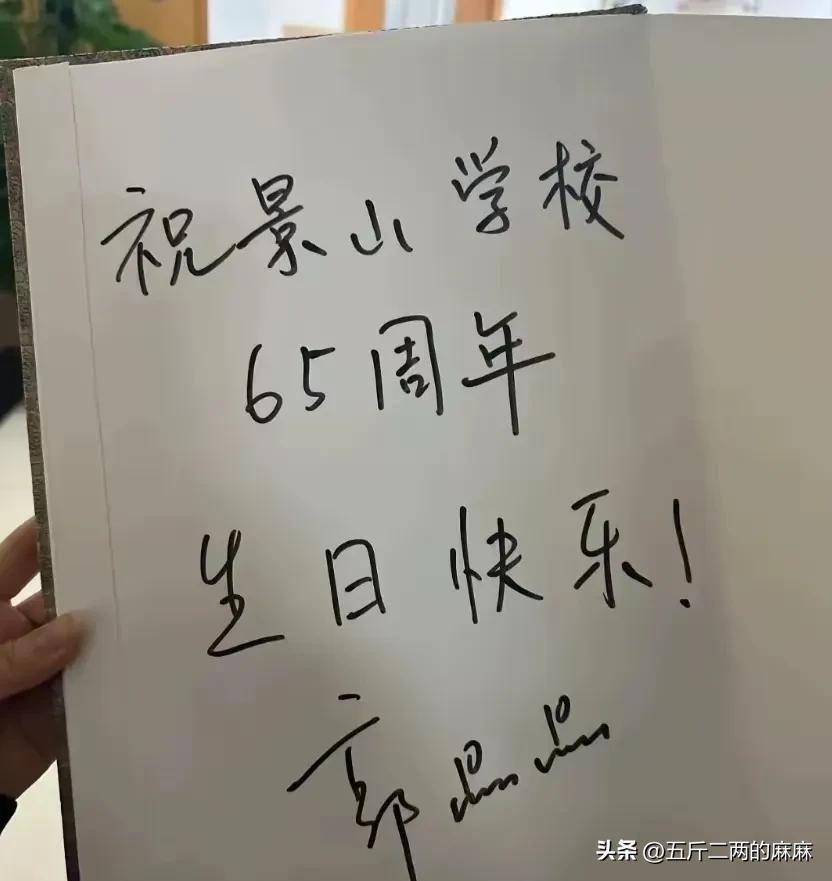 祝景山学校
65周年
生日快乐!
郭晶晶
头条 @五斤二两的麻麻